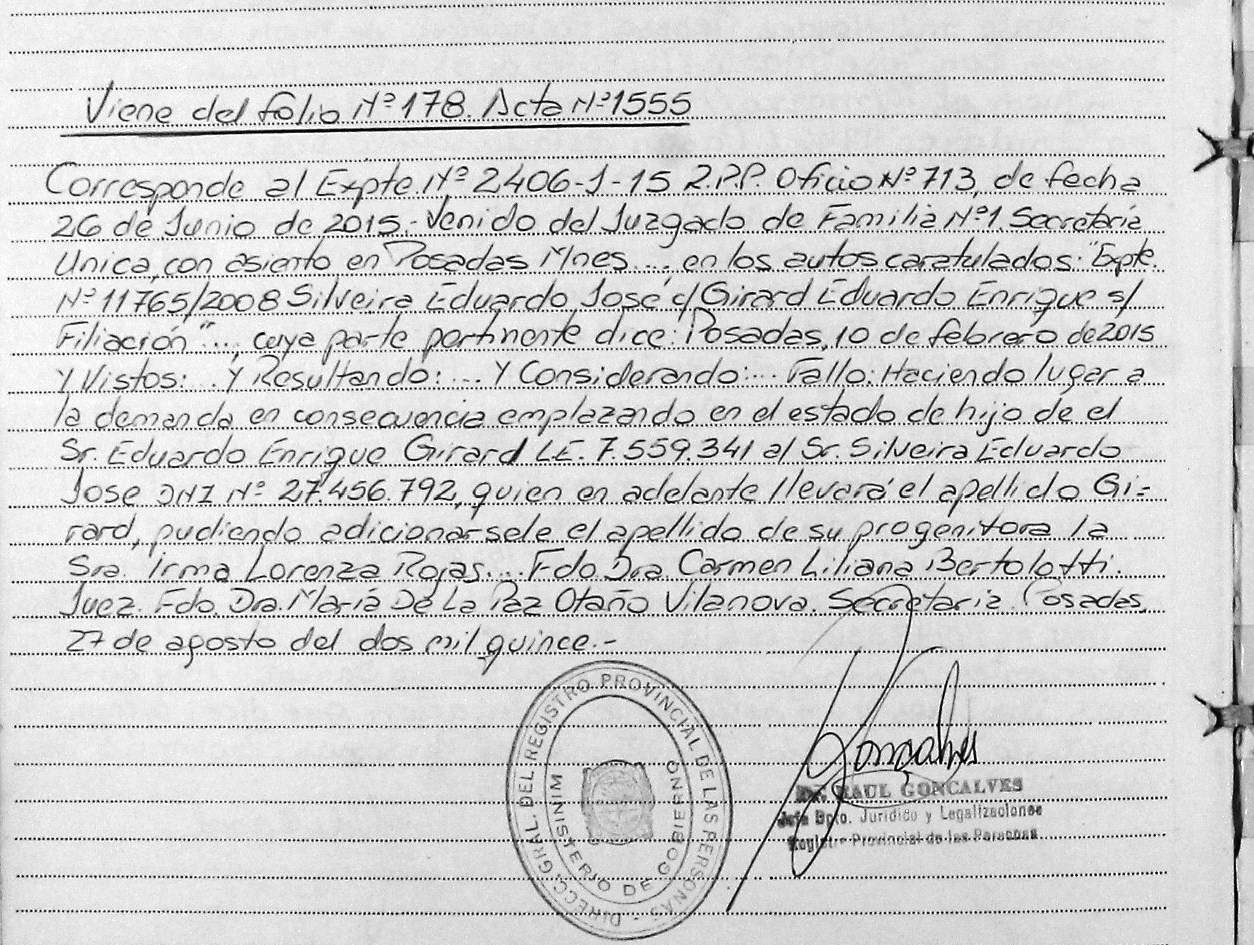 Viene del folio Nº 178. Acta Nº 1555
Corresponde al Expte. Nº 2406-J-15 R.P.P. Oficio Nº 713, de fecha
26 de Junio de 2015.- Venido del Juzgado de Familia Nº 1. Secretaría
Unica, con asiento en Posadas Mnes.... en los autos caratulados: "Expte.
Nº 11765/2008 Silveira Eduardo José c/ Girard Eduardo Enrique s/
Filiación"..., cuya parte pertinente dice: Posadas, 10 de febrero de 2015
Y Vistos:... Y Resultando:... Y Considerando:... Fallo: Haciendo lugar a
la demanda en consecuencia emplazando en el estado de hijo de el
Sr. Eduardo Enrique Girard L.E. 7.559.341 al Sr. Silveira Eduardo
Jose DNI Nº 27.456.792, quien en adelante llevará el apellido Gi-
rard, pudiendo adicionarsele el apellido de su progenitora la
Sra. Irma Lorenza Rojas... Fdo. Dra. Carmen Liliana Bertolotti.
Juez. Fdo. Dra. María De La Paz Otaño Vilanova. Secretaria. Posadas,
27 de agosto del dos mil quince.-
DIRECC. GRAL. DEL REGISTRO PROVINCIAL DE LAS PERSONAS -
MINISTERIO DE GOBIERNO
Goncalves
Dr. RAUL GONCALVES
Jefe Dpto. Jurídico y Legalizaciones
Registro Provincial de las Personas